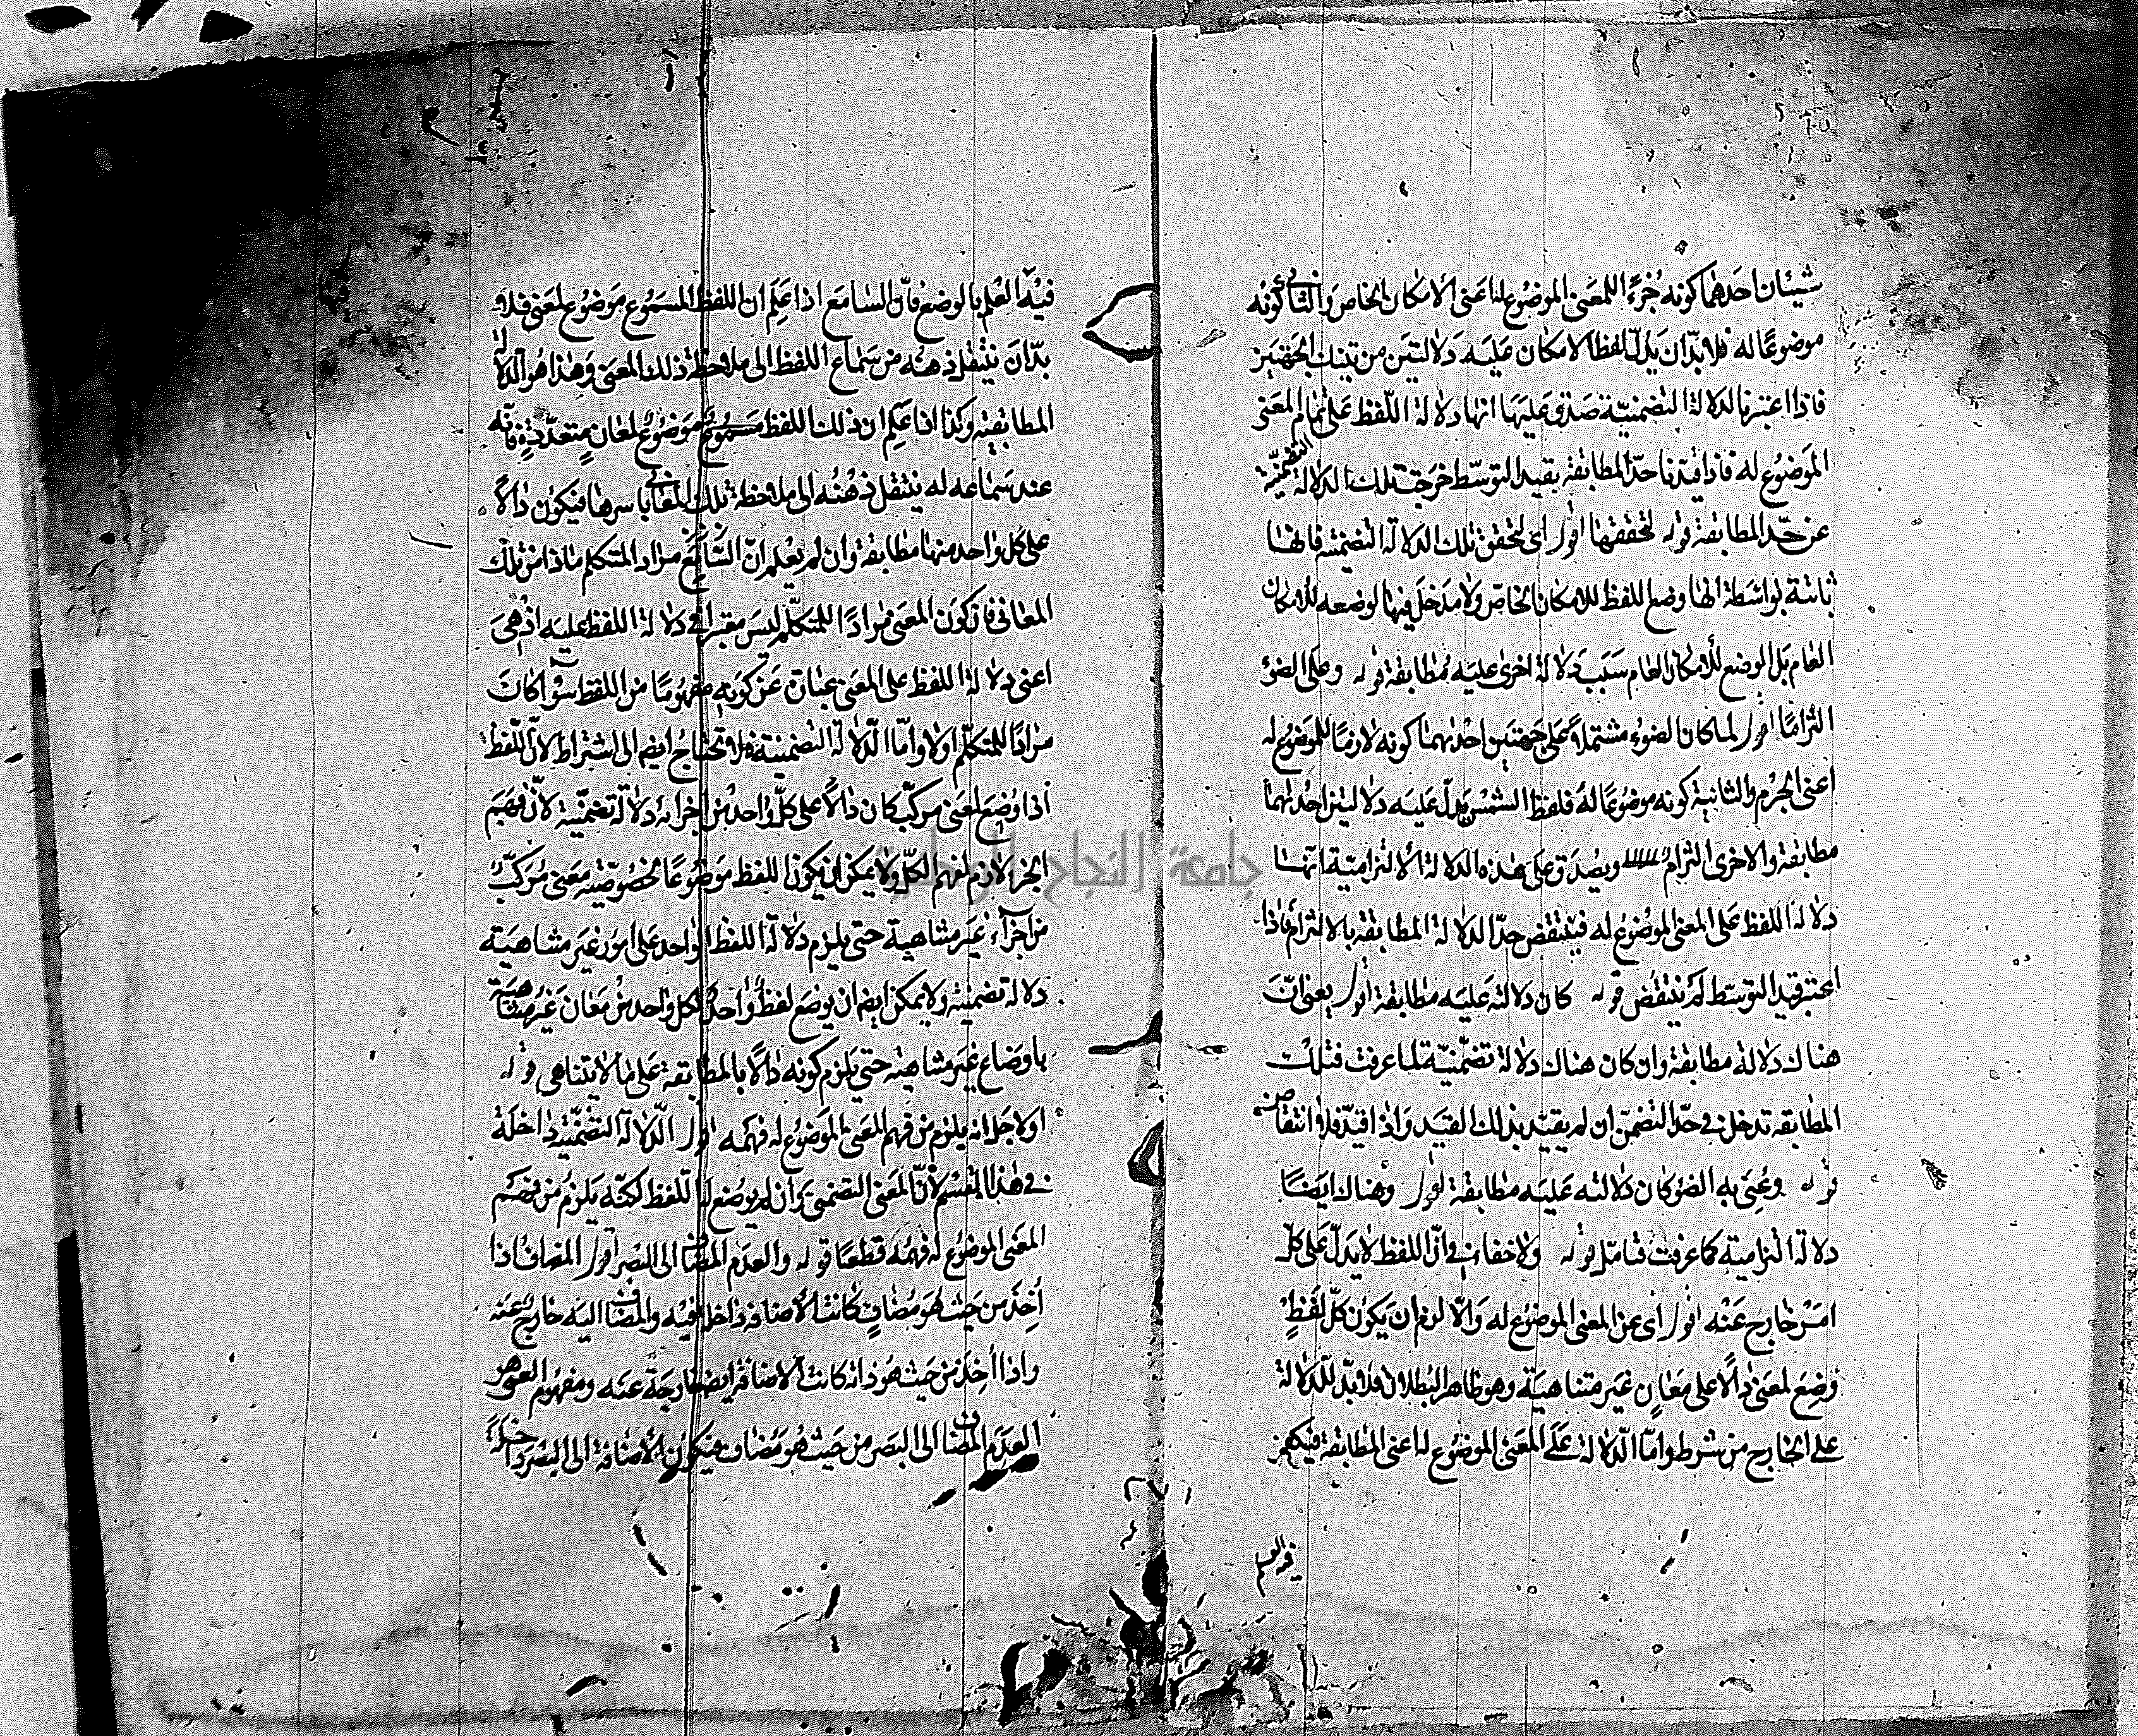 شيئان احدهما كونه جُزءًا للمعنى الموضوع لها اعنى الامكان الخاص والثانى كونه
موضوعًا له فلا بدّ ان يدلّ لفظ الامكان عليه دلالتين من تينك الجهتين
فاذا اعتبرنا الدلالة التضمنيّة صدق عليها انها دلالة اللّفظ على تمام المعنى
الموضوع له فاذا قيدنا حدّ المطابقة بقيد التوسّط خرجت تلك الدلالة التضمّنيّة
عن حدّ المطابقة قوله لتحققها اقول اى لتحقق تلك الدلالة التضمنية فانها
ثابتة بواسطة انها وضع اللفظ للامكان الخاصّ ولا مدخل فيها لوضعه للامكان
العام بل الوضع للامكان العام سَبَب دلالة اخرى عليه مُطابقة قوله وعلى الضوء
التزامًا اقول لما كان الضوء مشتملاً على جهتين احديهما كونه لازمًا للموضوع له
اعنى الجرم والثانية كونه موضوعًا له فلفظ الشمس يدلّ عليه دلالتين احديهما
مطابقة والاخرى التزام ويصدق على هذه الدلالة الالتزاميّة انها
دلالة اللفظ على المعنى الموضوع له فينتقض حدّ الدلالة المطابقة بالالتزام فاذا
اعتبر قيد التوسّط لم ينتقض قوله كان دلالته عليه مطابقة اقول يعنى انّ
هناك دلالة مطابقة وان كان هناك دلالة تضمّنيّة لما عرفت فتلك
المطابقة تدخل فى حدّ التضمّن ان لم يقيّد بذلك القيد واذا قيّد فلا انتقاض
قوله وعُنِىَ به الضوء كان دلالته عليه مطابقة اقول وهناك ايضًا
دلالة التزامية كما عرفت فتامّل قوله ولا خفاء فى انّ اللفظ لا يدلّ على كلّ
امر خارج عَنْه اقول اى عن المعنى الموضوع له والّا لزم ان يكون كلّ لفظٍ
وُضِعَ لمعنى دالًّا على معانٍ غير متناهيَة وهو ظاهر البُطلان فلا بدّ للدّلالة
على الخارج من شرط وامّا الدّلالة على المعنى الموضوع له اعنى المطابقة فيكفى
فيه العلم
فيه العلم بالوضع فانّ السامع اذا عَلِمَ ان اللفظ المسموع موضوع لمعنى فلا
بدّ ان ينتقل ذهنه من سَماع اللفظ الى ملاحظة ذلك المعنى وهذا هو الدلالة
المطابقية وكذا اذا عَلِمَ ان ذلك اللفظ مسموع موضوعٌ لمعانٍ متعدّدةٍ فانّه
عند سَماعه له ينتقل ذهنُه الى ملاحظة تلك المعانى باسرها فيكون دالًّا
على كل واحد منها مطابقة وان لم يعلم انّ مراد المتكلم ماذا من تلك
المعانى فان كون المعنى مرادًا للمتكلّم ليس معتبرا فى دلالة اللفظ عليه اذ هى
اعنى دلالة اللفظ على المعنى عبارة عن كونه مفهومًا من اللفظ سواء كان
مرادًا للمتكلّم اولا وامّا الدّلالة التضمنية فلا تحتاج ايضا الى اشتراط لانّ اللّفظ
اذا وُضِعَ لمعنى مركّب كان دالًّا على كلّ واحد من اجزائه دلالة تضمّنيّة لانّ فهم
الجزء لازم لفهم الكلّ ولا يمكن ان يكون اللفظ موضوعًا لخصوصيّة معنى مُركّبٍ
من اجزآء غير متناهية حتى يلزم دلالة اللفظ الواحد على امور غير متناهية
دلالة تضمنية ولا يمكن ايضا ان يوضع لفظٌ واحدٌ لكل واحد من معان غير متناهية
باوضاع غير متناهية حتى يلزم كونه دالًّا بالمطابقة على ما لا يتناهى قوله
اولاجل انه يلزم من فهم المعنى الموضوع له فهمه اقول الدّلالة التضمّنية داخلة
فى هذا القسم لانّ المعنى التضمنى وان لم يوضع له اللّفظ لكنّه يلزم من فهم
المعنى الموضوع له فهمه قطعًا قوله والعدم المضاف الى البصر اقول المضاف اذا
أُخِذَ من حيث هو مُضافٍ كانت الاضافة داخلة فيه والمضاف اليه خارج عنه
واذا أُخِذَ من حيث هو ذاته كانت الاضافة ايضا خارجة عنه ومفهوم العمى هو
العدم المضاف الى البصر من حيث هو مضاف فيكون الاضافة الى البصر داخلةً
جامعة النجاح الوطنية